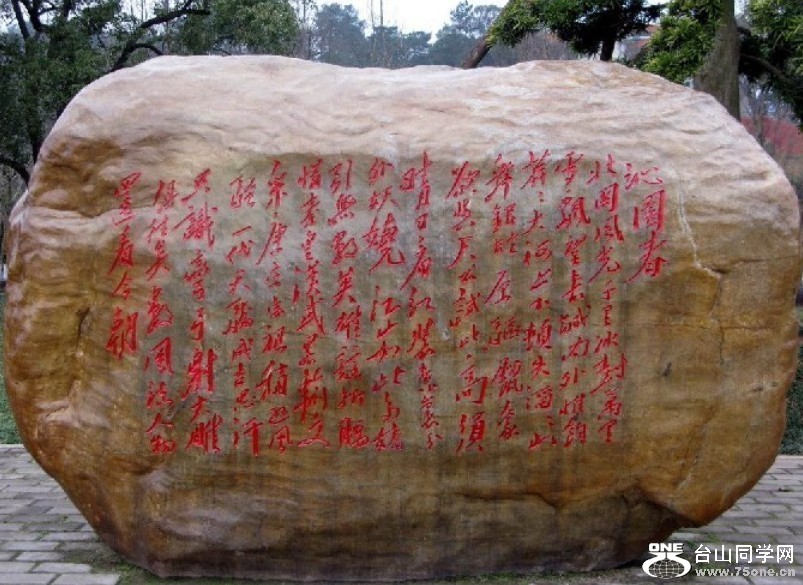 沁园春
北国风光千里冰封万里
雪飘望长城内外惟余
莽莽大河上下顿失滔滔山
舞银蛇原驰蜡象
欲与天公试比高须
晴日看红装素裹分
外妖娆江山如此多娇
引无数英雄竞折腰
惜秦皇汉武略输文
采唐宗宋祖稍逊风
骚一代天骄成吉思汗
只识弯弓射大雕
俱往矣数风流人物
还看今朝
ONE 台山同学网
www.75one.cn